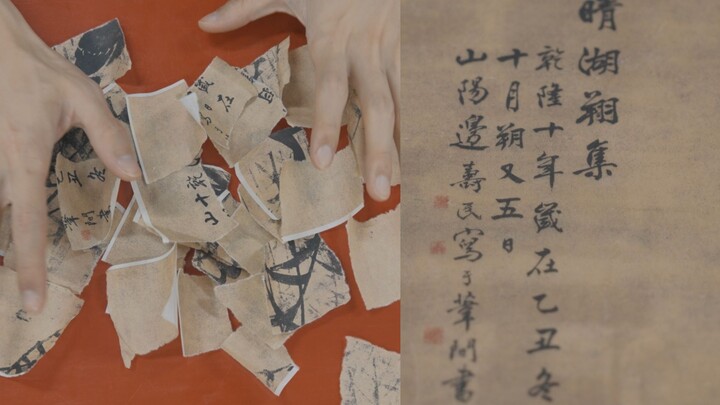 乙丑冬
葦間
晴湖翔集
乾隆十年歲在乙丑冬
十月朔又五日
山陽邊壽民寫于葦間書